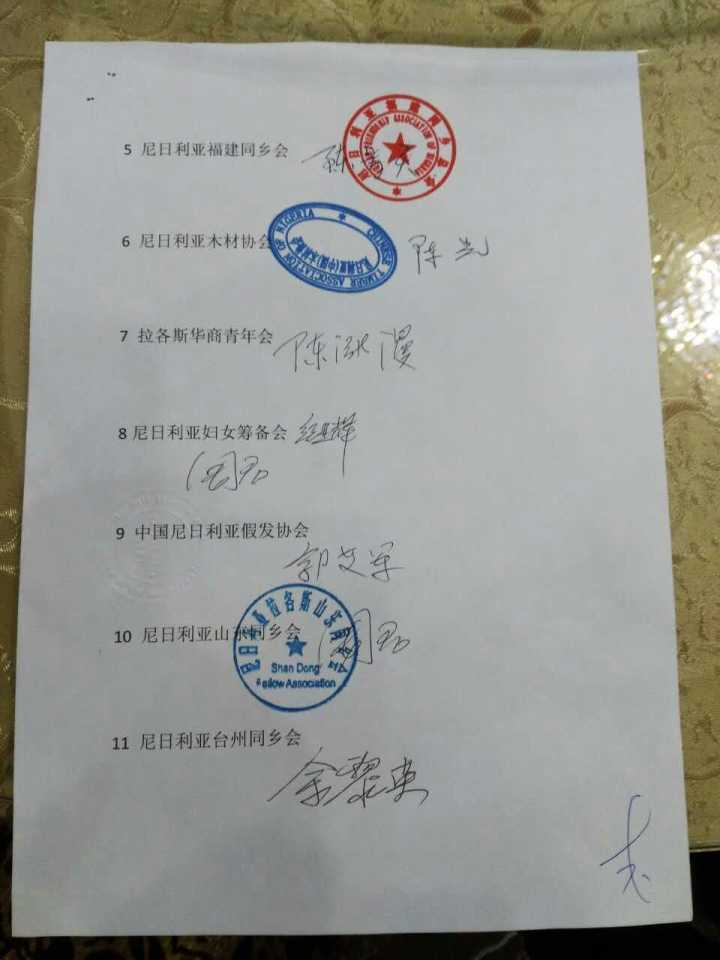 5 尼日利亚福建同乡会
6 尼日利亚木材协会
CHINESE TIMBER ASSOCIATION OF NIGERIA
陈光
7 拉各斯华商青年会
陈
8 尼日利亚妇女筹备会
9 中国尼日利亚假发协会
郭艾军
10 尼日利亚山东同乡会
尼日利亚拉各斯山东同乡会
Shan Dong
Fellow Association
11 尼日利亚台州同乡会
余黎